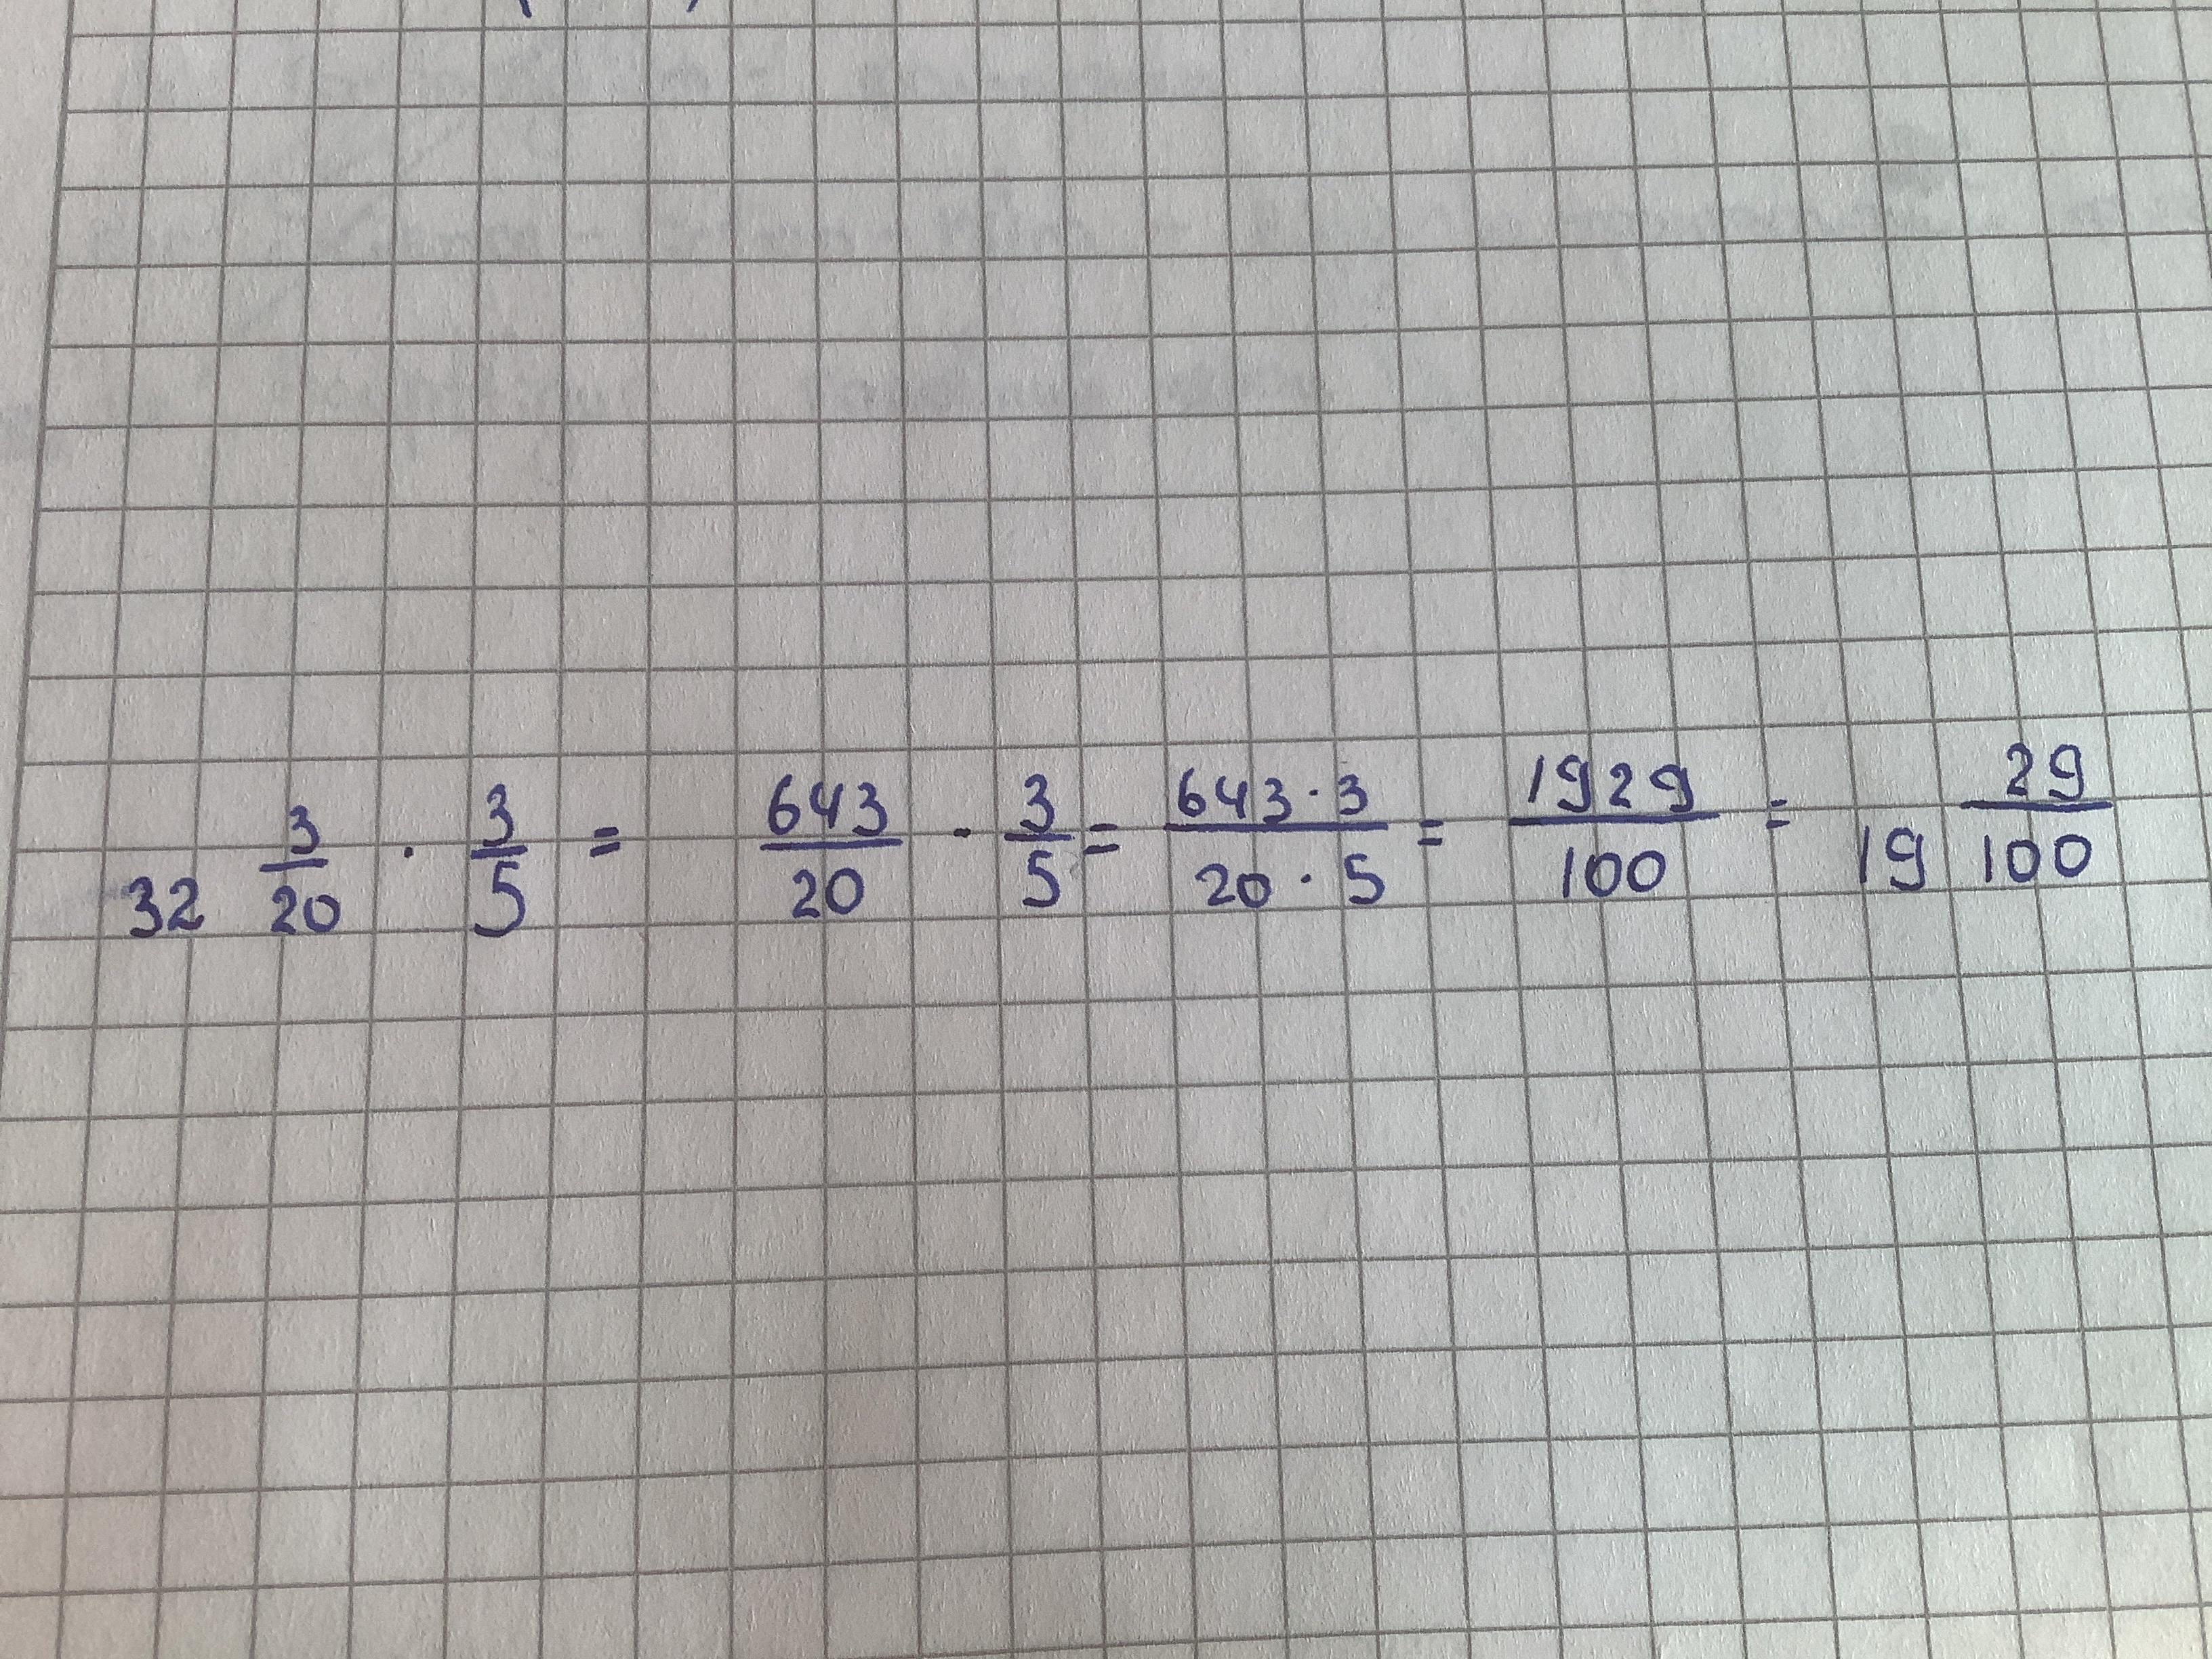 32 3/20 · 3/5 = 643/20 · 3/5 = 643·3/20·5 = 1929/100 = 19 29/100